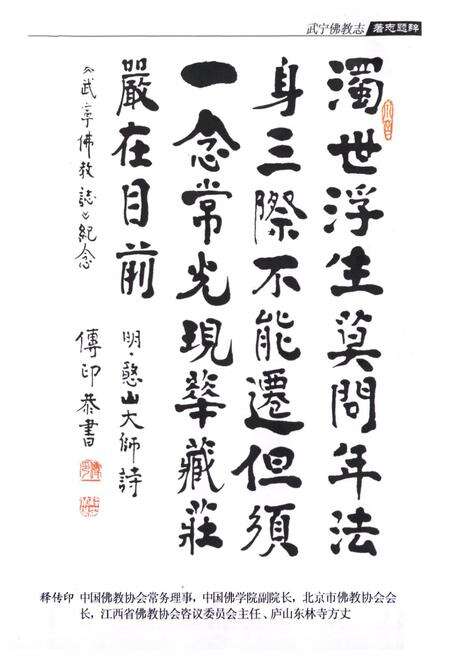 武宁佛教志 著志题辞
濁世浮生莫問年法
身三際不能遷但須
一念常光現華藏莊
嚴在目前
明·憨山大師詩
《武寧佛教誌》紀念
傳印恭書
释传印 中国佛教协会常务理事，中国佛学院副院长，北京市佛教协会会
长，江西省佛教协会咨议委员会主任、庐山东林寺方丈